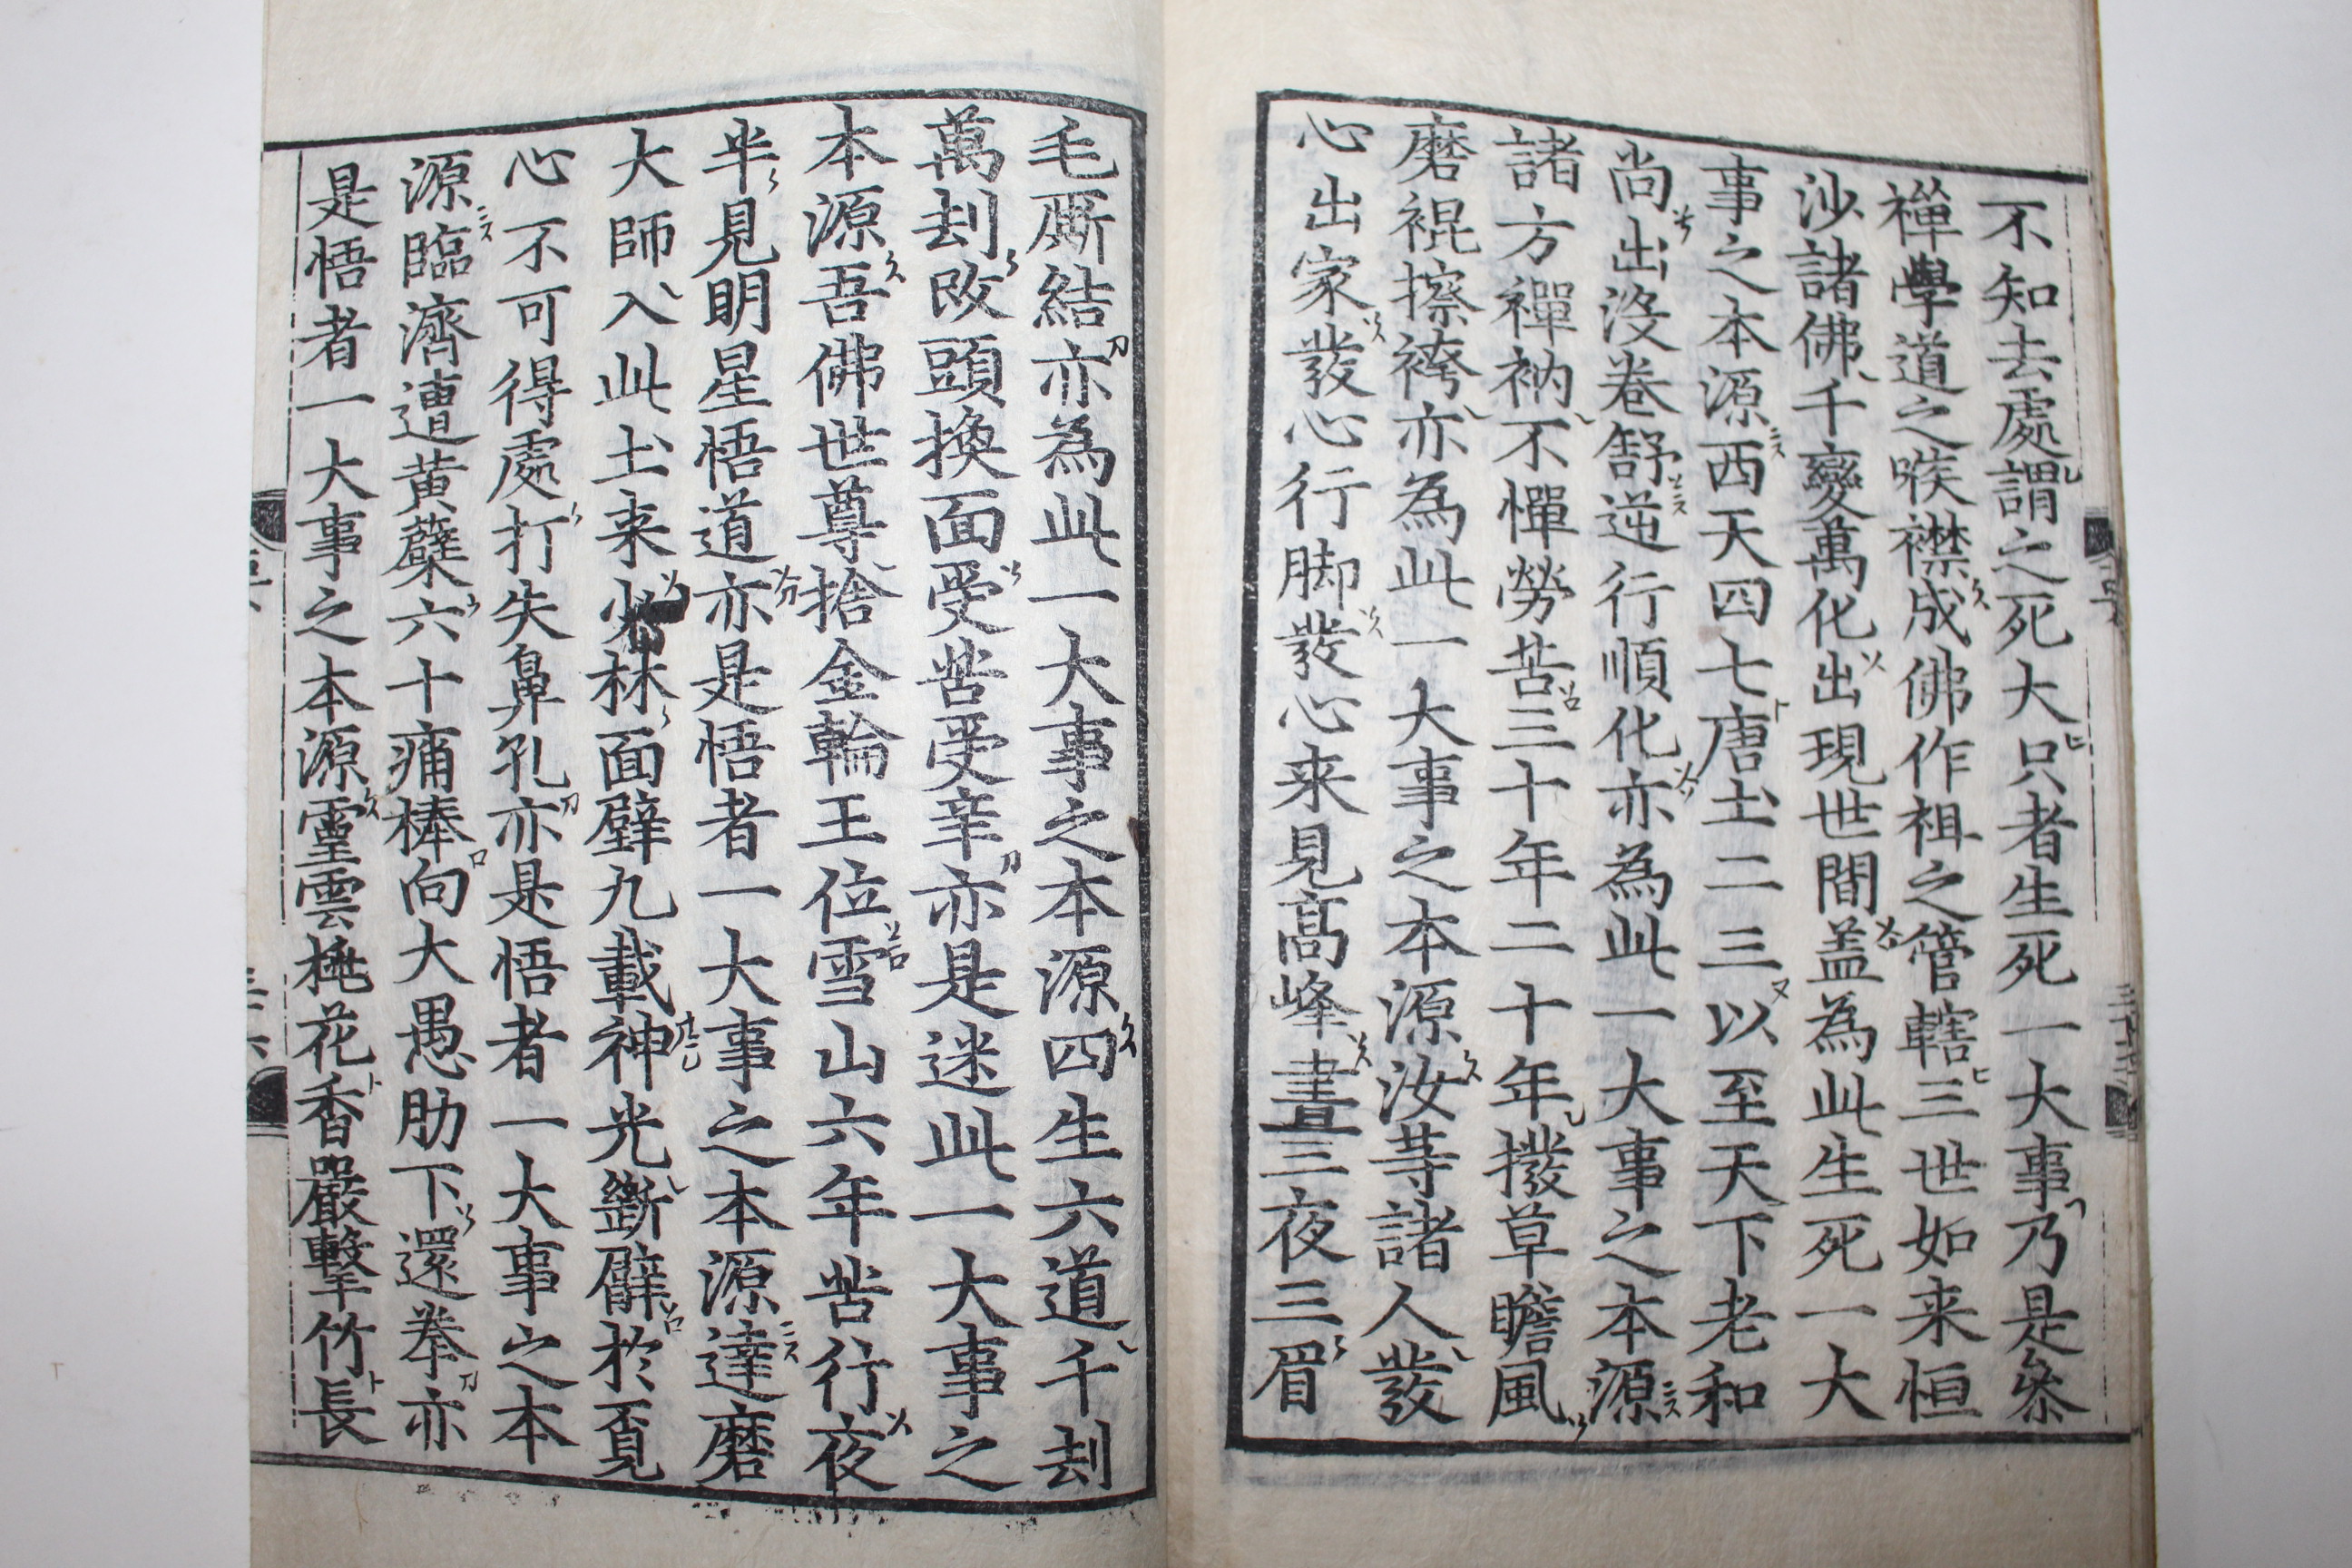 不知去處謂之死大只者生死一大事乃是叅
禪學道之喉襟成佛作祖之管轄三世如来恒
沙諸佛千變萬化出現世間盖為此生死一大
事之本源西天四七唐土二三以至天下老和
尚出沒卷舒逆行順化亦為此一大事之本源
諸方禪衲不憚勞苦三十年二十年撥草瞻風
磨裩擦袴亦為此一大事之本源汝等諸人發
心出家發心行脚發心来見高峰晝三夜三眉
毛厮結亦為此一大事之本源四生六道千刦
萬刦改頭換面受苦受辛亦是迷此一大事之
本源吾佛世尊捨金輪王位雪山六年苦行夜
半見明星悟道亦是悟者一大事之本源達磨
大師入此土来少林面壁九載神光斷臂於覔
心不可得處打失鼻孔亦是悟者一大事之本
源臨濟遭黃蘗六十痛棒向大愚肋下還拳亦
是悟者一大事之本源靈雲桃花香嚴擊竹長